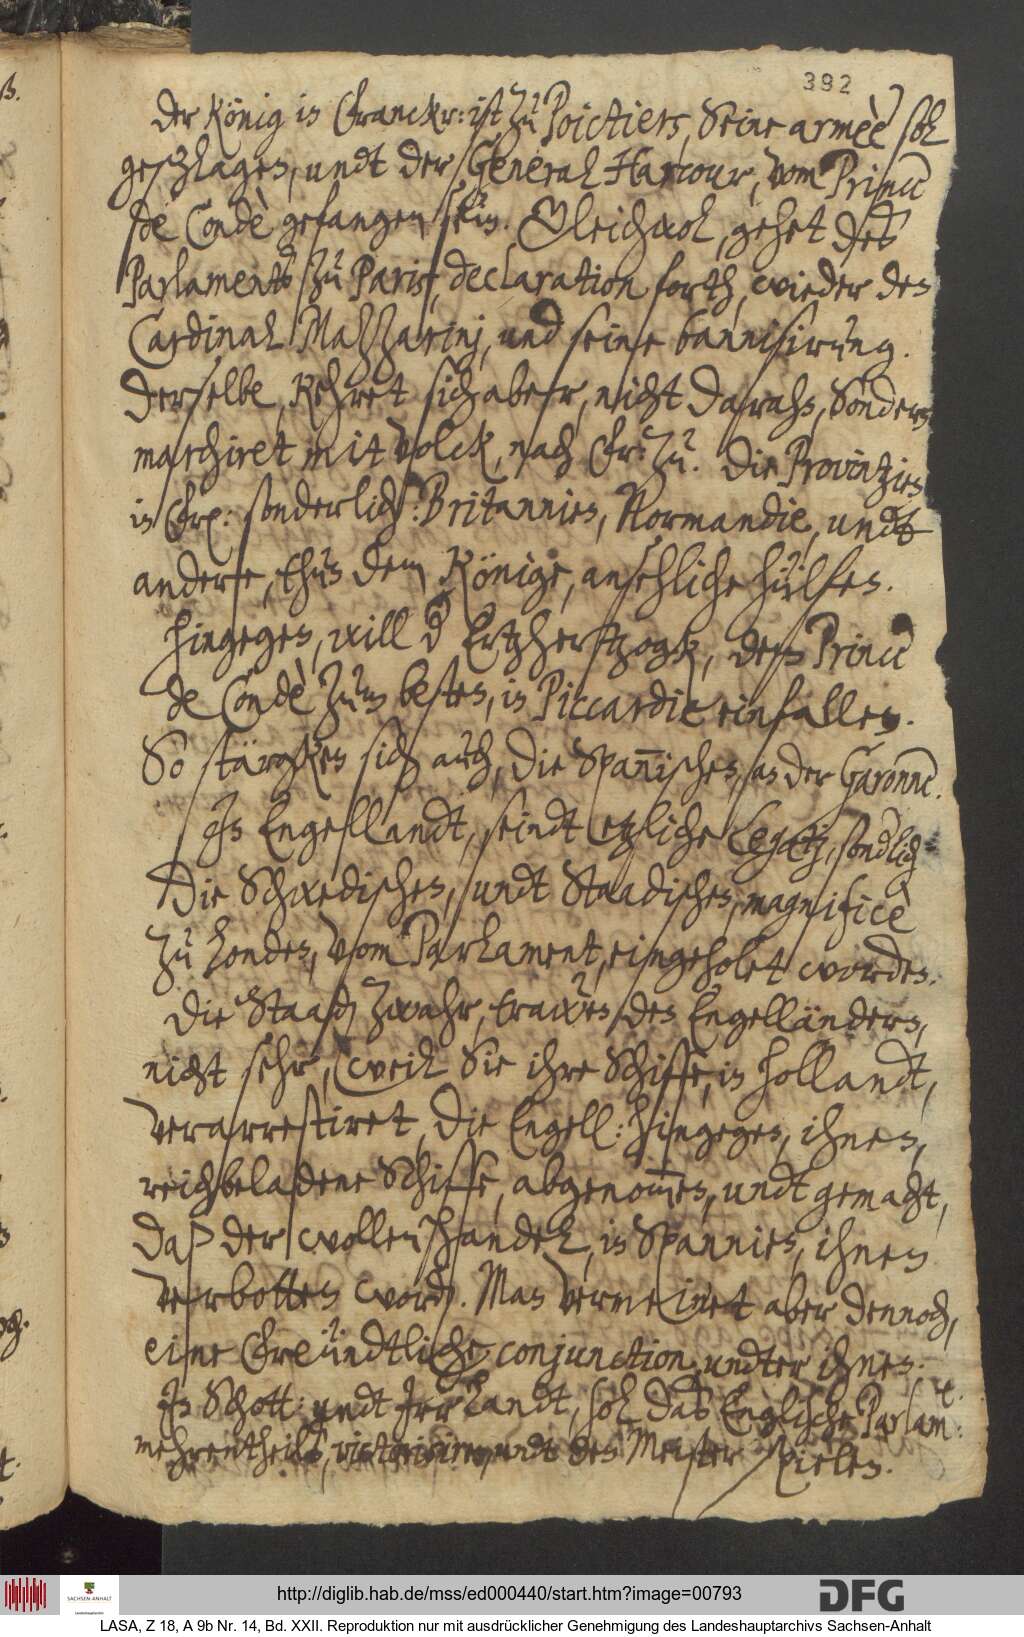 392
Der König in Franckr: ist zu Poictiers, Seine armèè sol
geschlagen, undt der General Harcour, vom Princ
de Condè gefangen sein. Gleichwol, gehet des
Parlaments zu Pariß, declaration forth, wieder den
Cardinal Mazzarinj, und seine bannisirung.
Derselbe, kehret sich aber, nicht daran, Sondern
marchiret mit volck, nach Fr: zu. Die Provintzien
in Fr: sonderlich: Britannien, Normandie, undt
andere, thun dem Könige, ansehliche hülfen.
Hingegen, will d Ertzhertzogk, dem Princ
de Condè zum besten, in Piccardie einfallen.
So stärcken sich auch, die Spannischen, an der Garonne.
In Engellandt, seindt etzliche Legatj, sonderlich
Die Schwedischen, undt Staadischen, magnificè
zu Londen, vom Parlament, eingeholet worden.
Die Staadn zwahr, trawen den Engelländern,
nicht sehr, weil Sie ihre Schiffe, in Hollandt,
verarrestiret, Die Engell: hingegen, ihnen,
reichbeladene Schiffe, abgenommen, undt gemacht,
Daß der wollen handel, in Spannien, ihnen
verbotten word. Man vermeinet aber dennoch,
eine Freündtliche conjunction undter ihnen.
In Schott: undt Irrlandt, sol das Englische Parlamt:
mehrentheils, victorisiren, undt den Meister spielen.
http://diglib.hab.de/mss/ed000440/start.htm?image=00793
SACHSEN-ANHALT
Landeshauptarchiv
DFG
LASA, Z 18, A 9b Nr. 14, Bd. XXII. Reproduktion nur mit ausdrücklicher Genehmigung des Landeshauptarchivs Sachsen-Anhalt